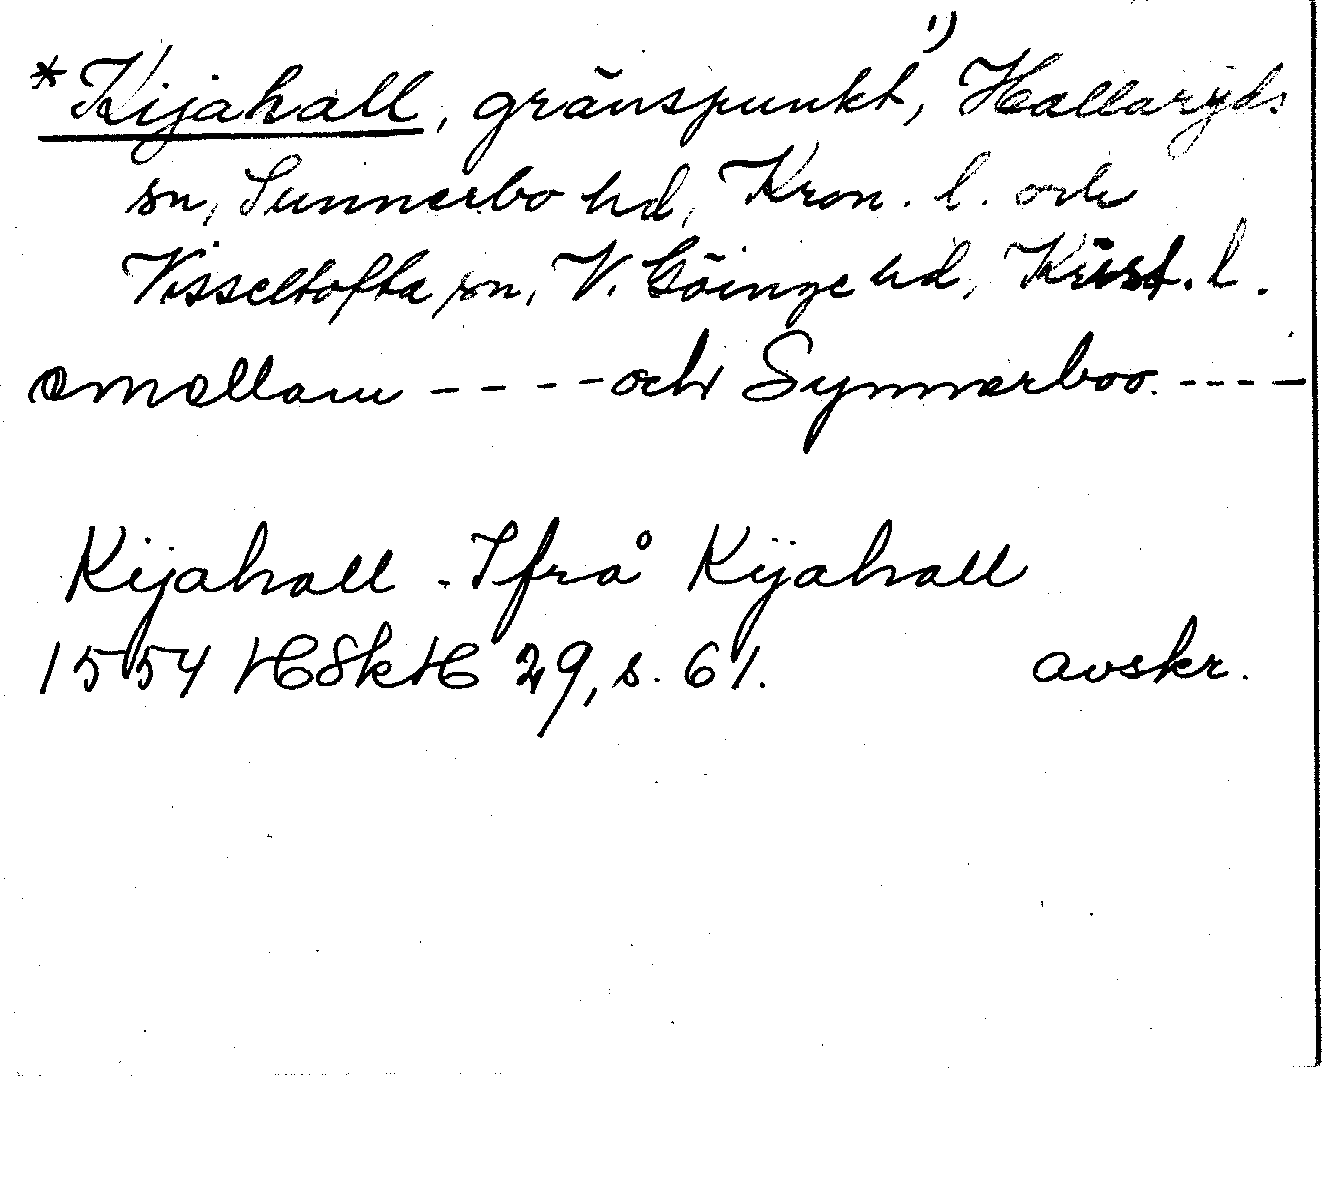 *Kijahall, gränspunkt,¹⁾ Hallaryds
sn, Sunnerbo hd, Kron. l. och
Visseltofta sn, V. Göinge hd, Krist. l.
emellam - - - - och Synnerboo. - - - -
Kijahall - Ifrå Kijahall
1554 HSkH 29, s. 61. avskr.